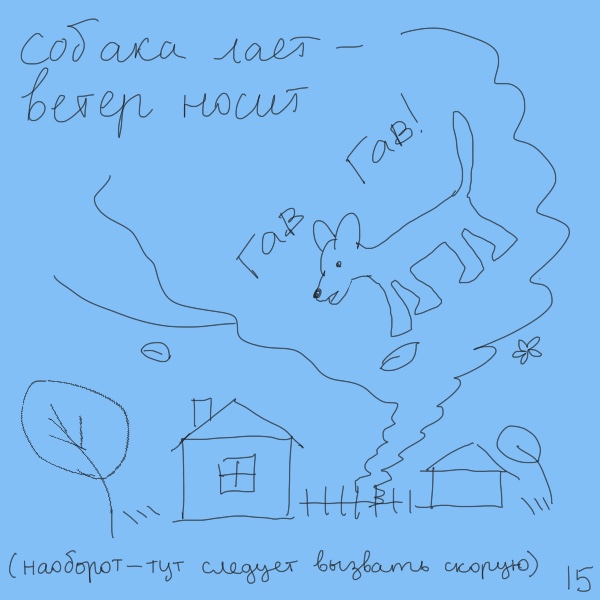 собака лает –
ветер носит
гав!
гав
(наоборот – тут следует вызвать скорую)
15